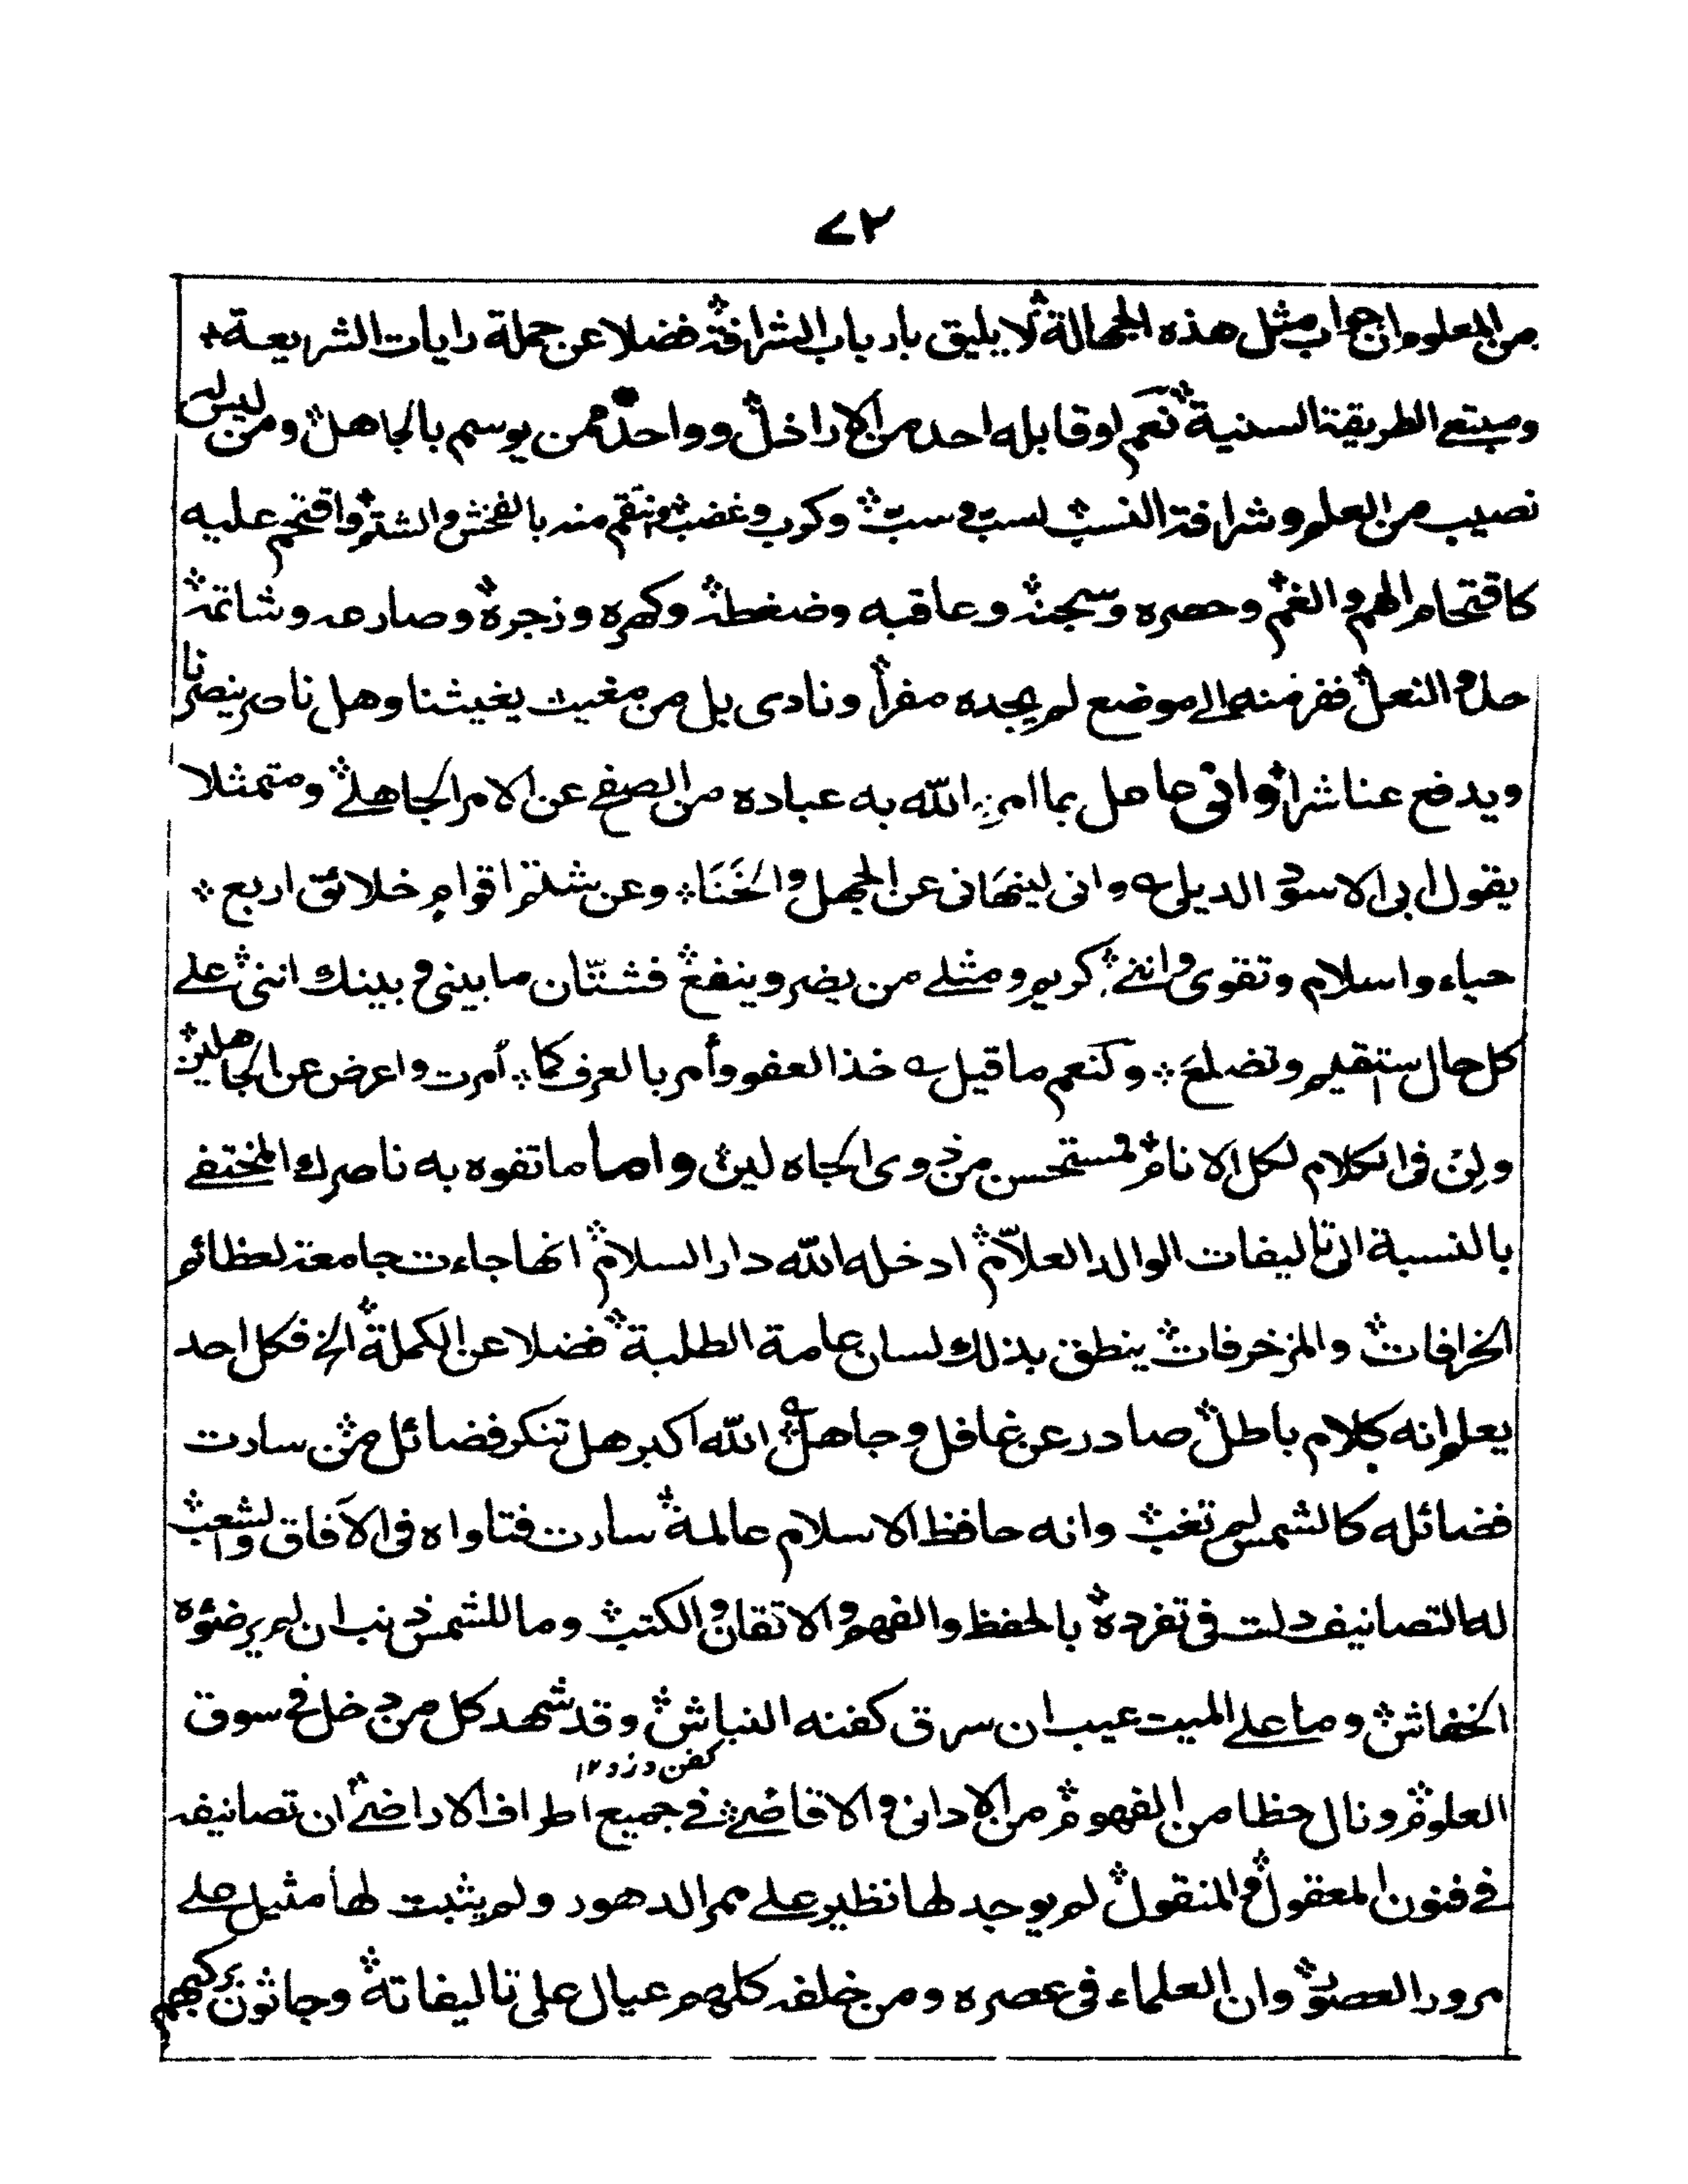 ٧٢
من المعلوم ان جواب مثل هذه الجهالة لا يليق بارباب الشرافة فضلا عن حملة رايات الشريعة
ومبتع الطريقة السنية نعم لو قابله احد من الاراذل وواحد ممن يوسم بالجاهل ومن ليس له
نصيب من العلم وشرافة النسب لسب وسب وكرب وغضب وانتقم منه بالفحش والشتم واقتحم عليه
كاقتحام الهم والغم وحصره وسجنه وعاقبه وضغطه وكهره وزجره وصارعه وشاتمه
النعل ففر منه الى موضع لم يجده مفرا ونادى بل من مغيث يغيثنا وهل ناصر ينصرنا
ويدفع عنا شرا وانى عامل بما امر الله به عباده من الصفح عن الامر الجاهلى ومتمثلا
بقول ابى الاسود الديلى وانى لينهانى عن الجهل والخَنَا وعن شتم اقوام خلائق اربع
حياء واسلام وتقوى واننى كريم ومثلى من يضر وينفع فشتّان ما بينى وبينك اننى على
كل حال استقيم وتضلع ولنعم ما قيل خذ العفو وأمر بالعرف كما أمرت واعرض عن الجاهلين
ولِن فى الكلام لكل الانام فمستحسن من ذوى الجاه لين واما ما تفوه به ناصرك المختفى
بالنسبة الى تاليفات الوالد العلّام ادخله الله دار السلام انها جاءت جامعة لعظائم
الخرافات والمزخرفات ينطق بذلك لسان عامة الطلبة فضلا عن الكملة الخ فكل احد
يعلم انه كلام باطل صادر عن غافل وجاهل الله اكبر هل تنكر فضائل من سارت
فضائله كالشمس لم تغب وانه حافظ الاسلام عالمة سارت فتاواه فى الآفاق والشعب
له التصانيف دلت فى تفرده بالحفظ والفهم والاتقان والكتب وما للشمس ذنب ان لم ير ضوءه
الخفاش وما على الميت عيب ان سرق كفنه النباش وقد شهد كل من دخل فى سوق
كفن دزد ١٢
العلوم ونال حظا من الفهوم من الادانى والاقاضى فى جميع اطراف الاراضى ان تصانيفه
فى فنون المعقول والمنقول لم يوجد لها نظير على ممر الدهور ولم يثبت لها مثيل على
مرور العصور وان العلماء فى عصره ومن خلفه كلهم عيال على تاليفاته وجاثون